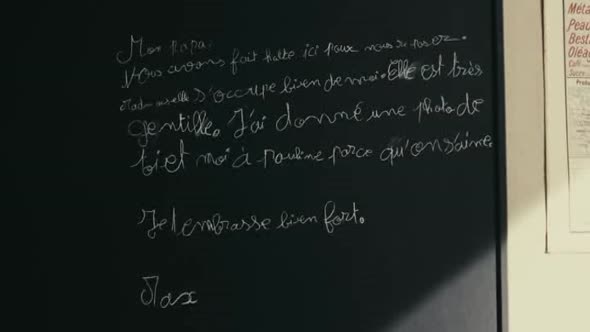 Mon papa.
Nous avons fait halte ici pour nous reposer.
Mademoiselle s'occupe bien de moi. Elle est très
gentille. J'ai donné une photo de
toi et moi à Pauline parce qu'on s'aime.
Je t'embrasse bien fort.
Max
Méta
Peau
Besta
Oléa